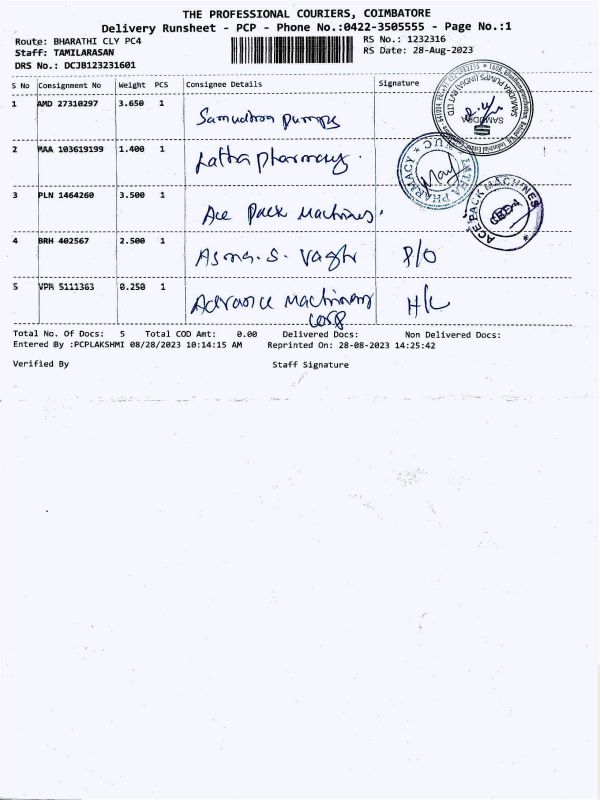 THE PROFESSIONAL COURIERS, COIMBATORE
Delivery Runsheet - PCP - Phone No.:0422-3505555 - Page No.:1
Route: BHARATHI CLY PC4 RS No.: 1232316
Staff: TAMILARASAN RS Date: 28-Aug-2023
DRS No.: DCJB123231601
S No Consignment No Weight PCS Consignee Details Signature
1 AMD 27310297 3.650 1 Samudhra Pumps
SAMUDRA PUMPS (INDIA) PVT LTD
SAMUDRA
2 MAA 103619199 1.400 1 Latha Pharmacy.
LATHA PHARMACY
3 PLN 1464260 3.500 1 Ace Pack Machines.
ACE PACK MACHINES
4 BRH 402567 2.500 1 Asma. S. Vagh P/O
5 VPM 5111363 0.250 1 Advance Machinery H/L
Corp
Total No. Of Docs: 5 Total COD Amt: 0.00 Delivered Docs: Non Delivered Docs:
Entered By :PCPLAKSHMI 08/28/2023 10:14:15 AM Reprinted On: 28-08-2023 14:25:42
Verified By Staff Signature